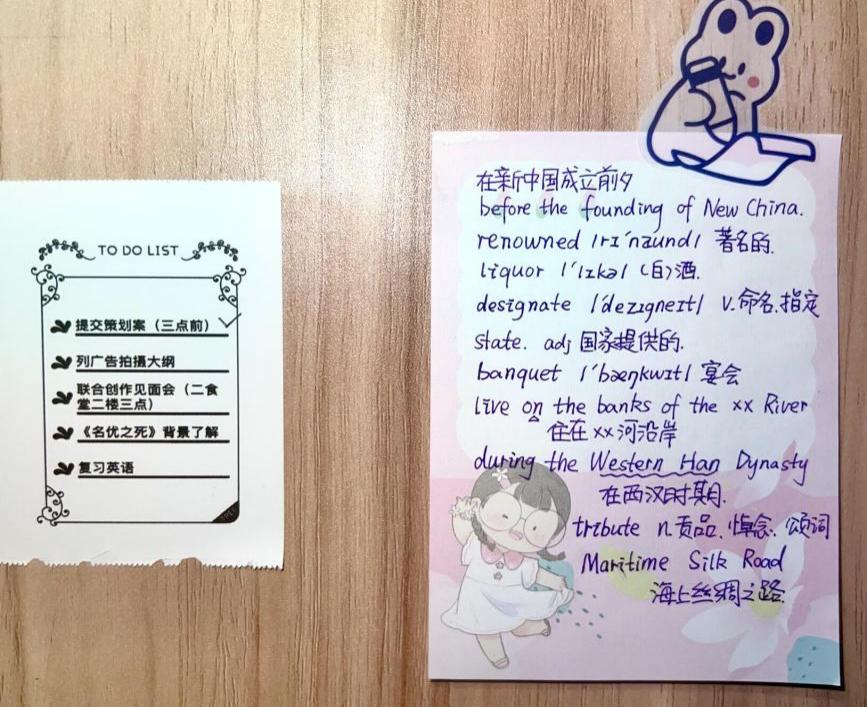 TO DO LIST
提交策划案（三点前）
列广告拍摄大纲
联合创作见面会（二食
堂二楼三点）
《名优之死》背景了解
复习英语
在新中国成立前夕
before the founding of New China.
renowned /rɪˈnaʊnd/ 著名的.
liquor /ˈlɪkə/ （白）酒.
designate /ˈdezɪgneɪt/ v.命名.指定
state. adj 国家提供的.
banquet /ˈbæŋkwɪt/ 宴会
live on the banks of the xx River
住在xx河沿岸
during the Western Han Dynasty
在西汉时期.
tribute n.贡品.悼念.颂词
Maritime Silk Road
海上丝绸之路.